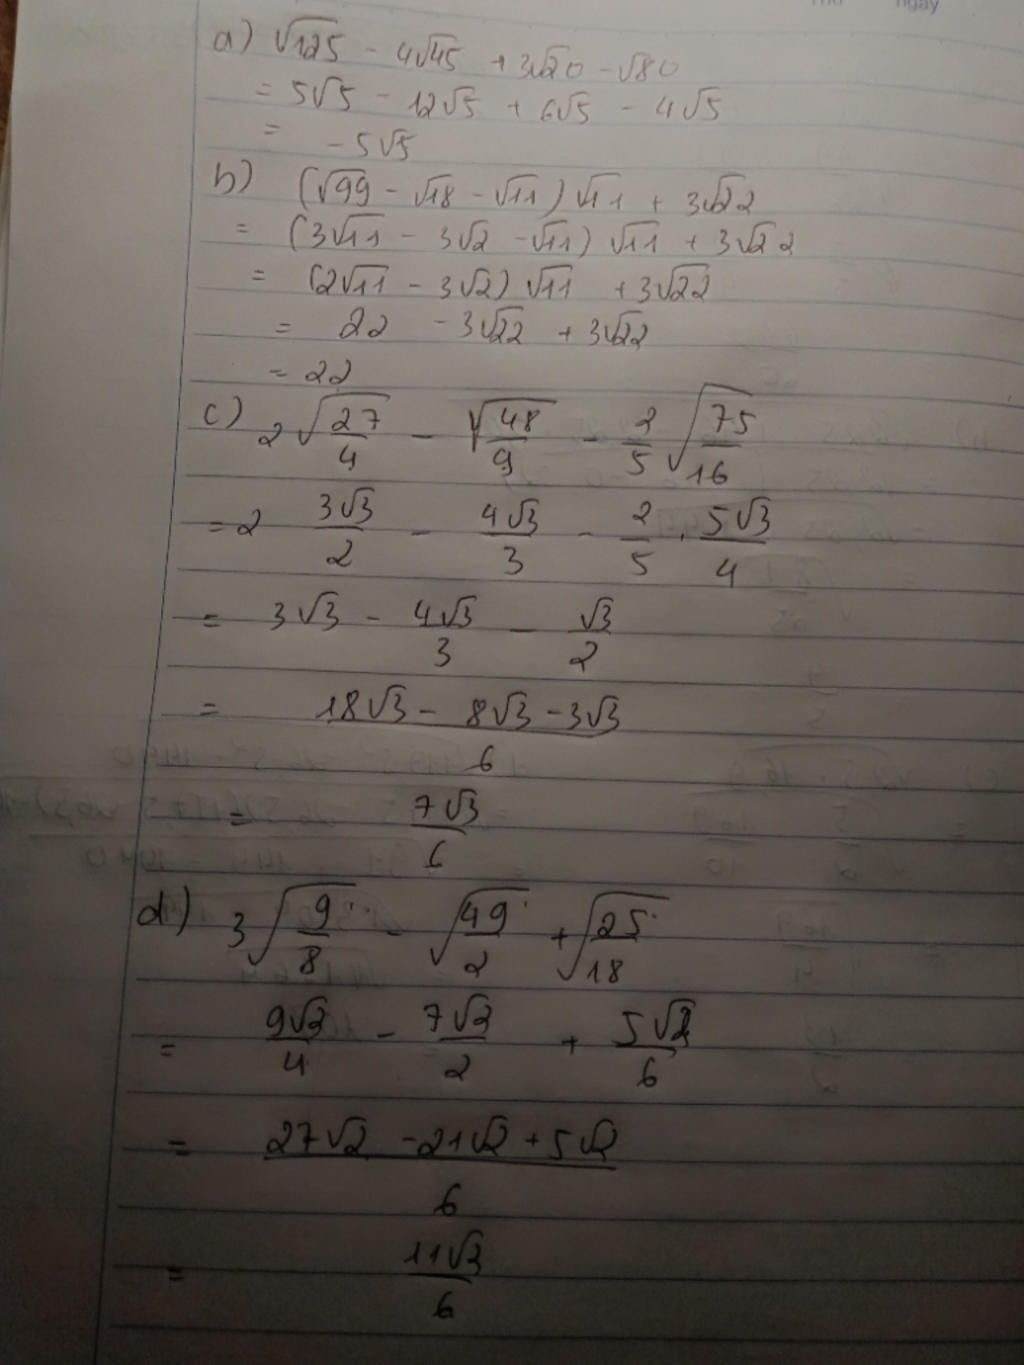 ngày
a) √125 - 4√45 + 3√20 - √80
= 5√5 - 12√5 + 6√5 - 4√5
= - 5√5
b) (√99 - √18 - √11) √11 + 3√22
= (3√11 - 3√2 - √11) √11 + 3√22
= (2√11 - 3√2) √11 + 3√22
= 22 - 3√22 + 3√22
= 22
c) 2√(27/4) - √(48/9) - 2/5 √(75/16)
= 2 3√3/2 - 4√3/3 - 2/5 . 5√3/4
= 3√3 - 4√3/3 - √3/2
= (18√3 - 8√3 - 3√3)/6
= 7√3/6
d) 3√(9/8) - √(49/2) + √(25/18)
= 9√2/4 - 7√2/2 + 5√2/6
= (27√2 - 21√2 + 5√2)/6
= 11√3/6